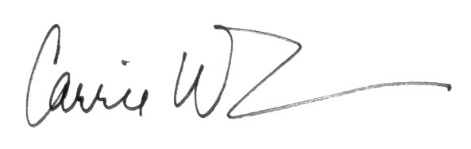 Carrie W